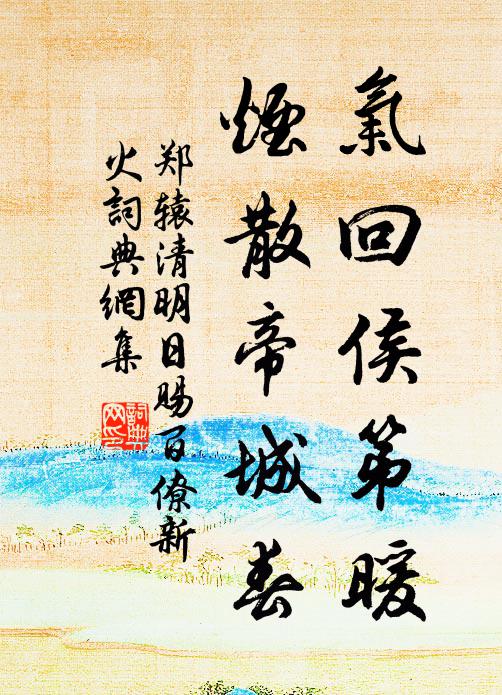 氣回侯第暖
煙散帝城春
郑辕清明日賜百僚新
火詞典網集
詞典网印